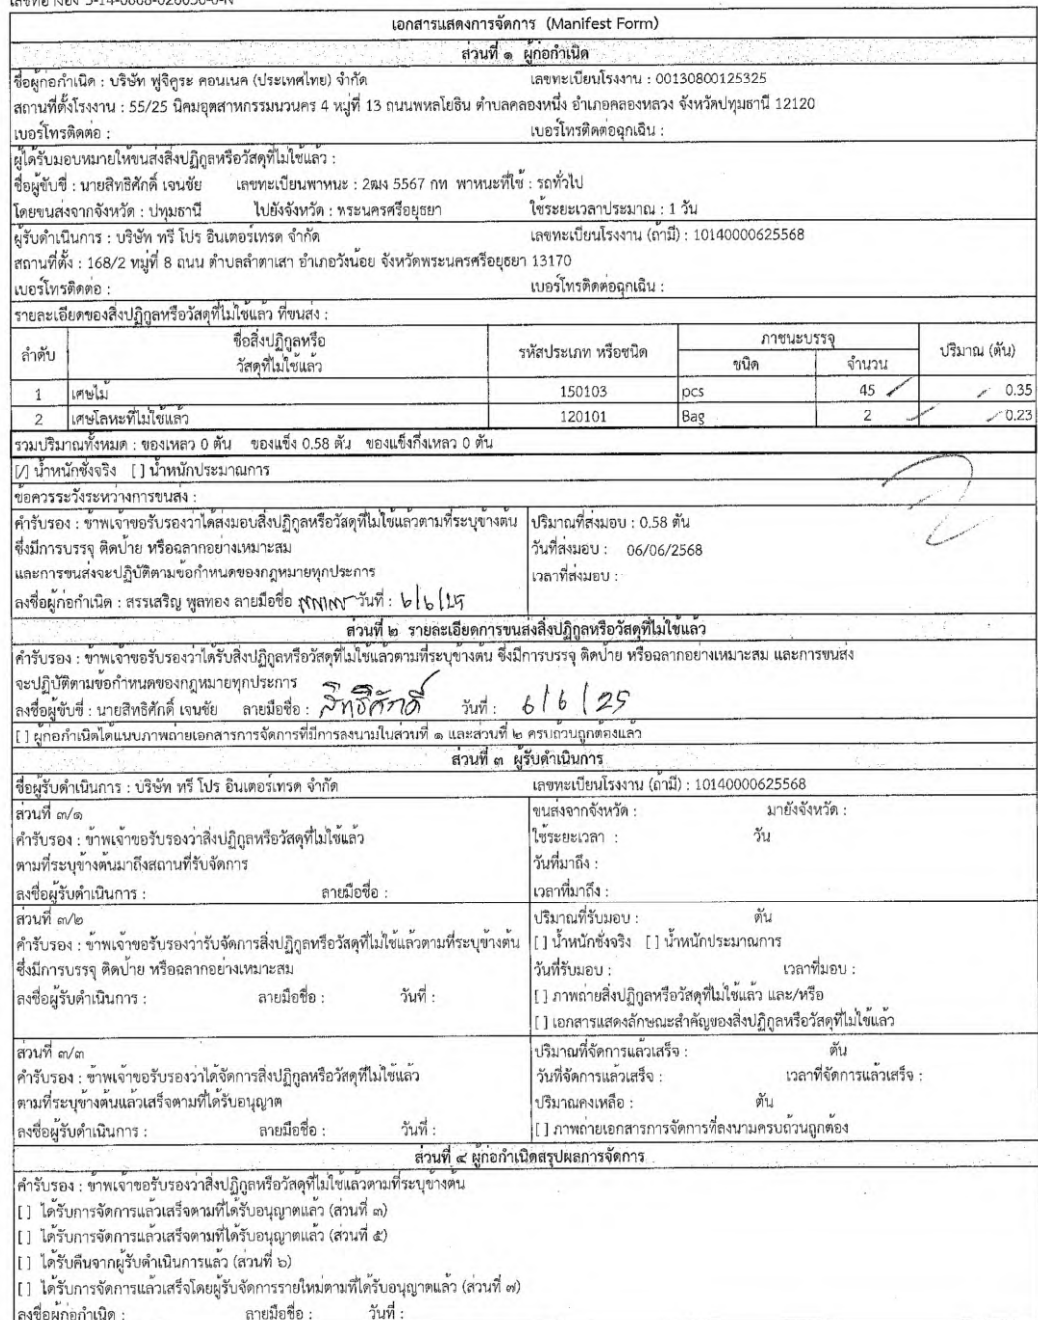 เอกสารแสดงการจัดการ (Manifest Form)
ส่วนที่ ๑ ผู้ก่อกำเนิด
ชื่อผู้ก่อกำเนิด : บริษัท ฟูจิคูระ คอนเนค (ประเทศไทย) จำกัด เลขทะเบียนโรงงาน : 00130800125325
สถานที่ตั้งโรงงาน : 55/25 นิคมอุตสาหกรรมนวนคร 4 หมู่ที่ 13 ถนนพหลโยธิน ตำบลคลองหนึ่ง อำเภอคลองหลวง จังหวัดปทุมธานี 12120
เบอร์โทรติดต่อ : เบอร์โทรติดต่อฉุกเฉิน :
ผู้ได้รับมอบหมายให้ขนส่งสิ่งปฏิกูลหรือวัสดุที่ไม่ใช้แล้ว :
ชื่อผู้ขับขี่ : นายสิทธิศักดิ์ เจนชัย เลขทะเบียนพาหนะ : 2ฒง 5567 กท พาหนะที่ใช้ : รถทั่วไป
โดยขนส่งจากจังหวัด : ปทุมธานี ไปยังจังหวัด : พระนครศรีอยุธยา ใช้ระยะเวลาประมาณ : 1 วัน
ผู้รับดำเนินการ : บริษัท ทรี โปร อินเตอร์เทรด จำกัด เลขทะเบียนโรงงาน (ถ้ามี) : 10140000625568
สถานที่ตั้ง : 168/2 หมู่ที่ 8 ถนน ตำบลลำตาเสา อำเภอวังน้อย จังหวัดพระนครศรีอยุธยา 13170
เบอร์โทรติดต่อ : เบอร์โทรติดต่อฉุกเฉิน :
รายละเอียดของสิ่งปฏิกูลหรือวัสดุที่ไม่ใช้แล้ว ที่ขนส่ง :
ลำดับ ชื่อสิ่งปฏิกูลหรือวัสดุที่ไม่ใช้แล้ว รหัสประเภท หรือชนิด ภาชนะบรรจุ ปริมาณ (ตัน)
ชนิด จำนวน
1 เศษไม้ 150103 pcs 45 0.35
2 เศษโลหะที่ไม่ใช้แล้ว 120101 Bag 2 0.23
รวมปริมาณทั้งหมด : ของเหลว 0 ตัน ของแข็ง 0.58 ตัน ของแข็งกึ่งเหลว 0 ตัน
[/] น้ำหนักชั่งจริง [ ] น้ำหนักประมาณการ
ข้อควรระวังระหว่างการขนส่ง :
คำรับรอง : ข้าพเจ้าขอรับรองว่าได้ส่งมอบสิ่งปฏิกูลหรือวัสดุที่ไม่ใช้แล้วตามที่ระบุข้างต้น ปริมาณที่ส่งมอบ : 0.58 ตัน
ซึ่งมีการบรรจุ ติดป้าย หรือฉลากอย่างเหมาะสม วันที่ส่งมอบ : 06/06/2568
และการขนส่งจะปฏิบัติตามข้อกำหนดของกฎหมายทุกประการ เวลาที่ส่งมอบ :
ลงชื่อผู้ก่อกำเนิด : สรรเสริญ พูลทอง ลายมือชื่อ วันที่ : 6/6/25
ส่วนที่ ๒ รายละเอียดการขนส่งสิ่งปฏิกูลหรือวัสดุที่ไม่ใช้แล้ว
คำรับรอง : ข้าพเจ้าขอรับรองว่าได้รับสิ่งปฏิกูลหรือวัสดุที่ไม่ใช้แล้วตามที่ระบุข้างต้น ซึ่งมีการบรรจุ ติดป้าย หรือฉลากอย่างเหมาะสม และการขนส่ง
จะปฏิบัติตามข้อกำหนดของกฎหมายทุกประการ
ลงชื่อผู้ขับขี่ : นายสิทธิศักดิ์ เจนชัย ลายมือชื่อ : สิทธิศักดิ์ วันที่ : 6/6/25
[ ] ผู้ก่อกำเนิดได้แนบภาพถ่ายเอกสารการจัดการที่มีการลงนามในส่วนที่ ๑ และส่วนที่ ๒ ครบถ้วนถูกต้องแล้ว
ส่วนที่ ๓ ผู้รับดำเนินการ
ชื่อผู้รับดำเนินการ : บริษัท ทรี โปร อินเตอร์เทรด จำกัด เลขทะเบียนโรงงาน (ถ้ามี) : 10140000625568
ส่วนที่ ๓/๑ ขนส่งจากจังหวัด : มายังจังหวัด :
คำรับรอง : ข้าพเจ้าขอรับรองว่าสิ่งปฏิกูลหรือวัสดุที่ไม่ใช้แล้ว ใช้ระยะเวลา : วัน
ตามที่ระบุข้างต้นมาถึงสถานที่รับจัดการ วันที่มาถึง :
ลงชื่อผู้รับดำเนินการ : ลายมือชื่อ : เวลาที่มาถึง :
ส่วนที่ ๓/๒ ปริมาณที่รับมอบ : ตัน
คำรับรอง : ข้าพเจ้าขอรับรองว่ารับจัดการสิ่งปฏิกูลหรือวัสดุที่ไม่ใช้แล้วตามที่ระบุข้างต้น [ ] น้ำหนักชั่งจริง [ ] น้ำหนักประมาณการ
ซึ่งมีการบรรจุ ติดป้าย หรือฉลากอย่างเหมาะสม วันที่รับมอบ : เวลาที่มอบ :
ลงชื่อผู้รับดำเนินการ : ลายมือชื่อ : วันที่ : [ ] ภาพถ่ายสิ่งปฏิกูลหรือวัสดุที่ไม่ใช้แล้ว และ/หรือ
[ ] เอกสารแสดงลักษณะสำคัญของสิ่งปฏิกูลหรือวัสดุที่ไม่ใช้แล้ว
ส่วนที่ ๓/๓ ปริมาณที่จัดการแล้วเสร็จ : ตัน
คำรับรอง : ข้าพเจ้าขอรับรองว่าได้จัดการสิ่งปฏิกูลหรือวัสดุที่ไม่ใช้แล้ว วันที่จัดการแล้วเสร็จ : เวลาที่จัดการแล้วเสร็จ :
ตามที่ระบุข้างต้นแล้วเสร็จตามที่ได้รับอนุญาต ปริมาณคงเหลือ : ตัน
ลงชื่อผู้รับดำเนินการ : ลายมือชื่อ : วันที่ : [ ] ภาพถ่ายเอกสารการจัดการที่ลงนามครบถ้วนถูกต้อง
ส่วนที่ ๔ ผู้ก่อกำเนิดสรุปผลการจัดการ
คำรับรอง : ข้าพเจ้าขอรับรองว่าสิ่งปฏิกูลหรือวัสดุที่ไม่ใช้แล้วตามที่ระบุข้างต้น
[ ] ได้รับการจัดการแล้วเสร็จตามที่ได้รับอนุญาตแล้ว (ส่วนที่ ๓)
[ ] ได้รับการจัดการแล้วเสร็จตามที่ได้รับอนุญาตแล้ว (ส่วนที่ ๕)
[ ] ได้รับคืนจากผู้รับดำเนินการแล้ว (ส่วนที่ ๖)
[ ] ได้รับการจัดการแล้วเสร็จโดยผู้รับจัดการรายใหม่ตามที่ได้รับอนุญาตแล้ว (ส่วนที่ ๗)
ลงชื่อผู้ก่อกำเนิด : ลายมือชื่อ : วันที่ :